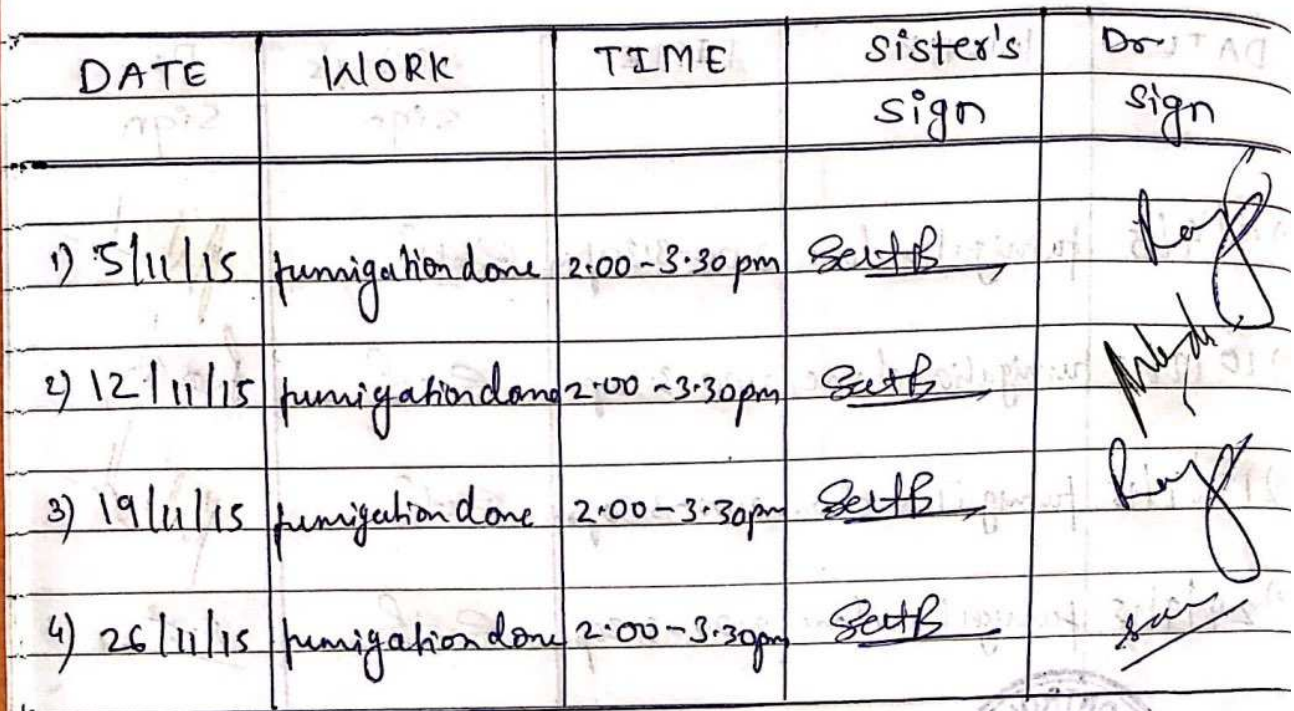 DATE WORK TIME Sister's Dr
Sign Sign
1) 5/11/15 fumigation done 2.00-3.30 pm
2) 12/11/15 fumigation done 2.00-3.30pm
3) 19/11/15 fumigation done 2.00-3.30pm
4) 26/11/15 fumigation done 2.00-3.30pm